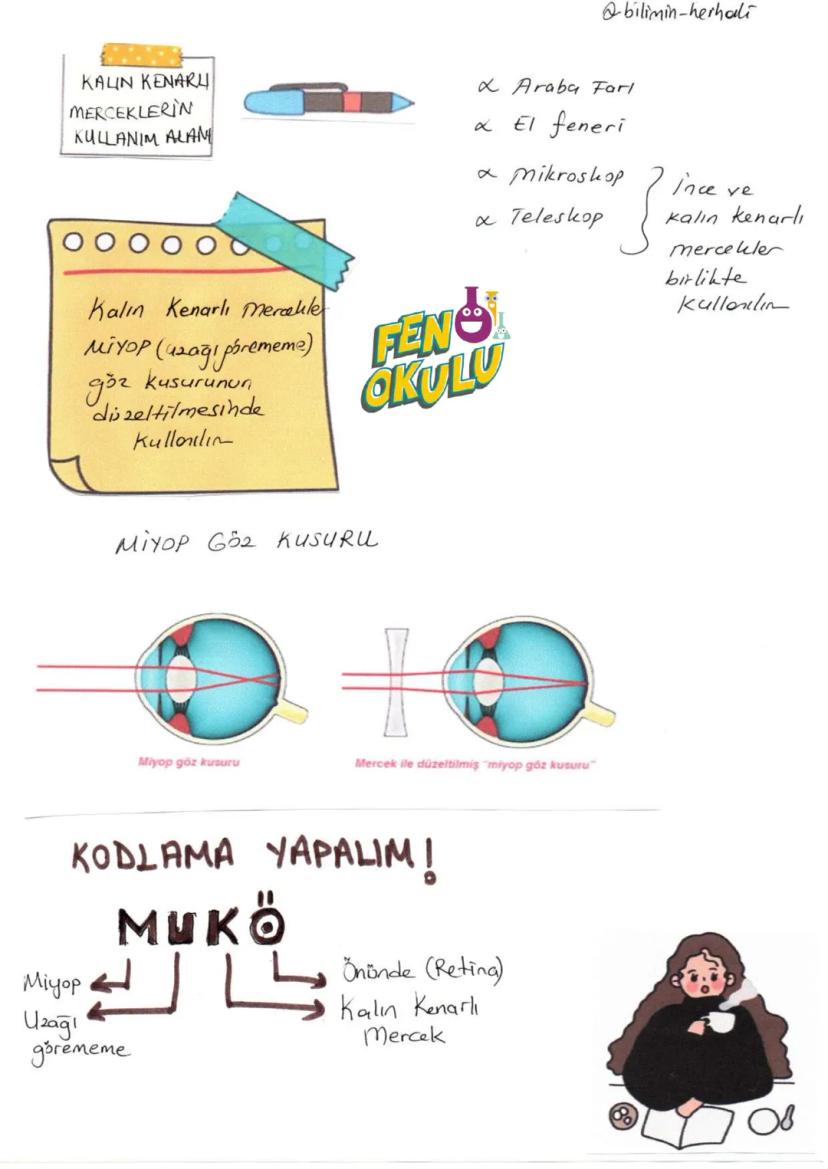 @bilimin_herhali
KALIN KENARLI
MERCEKLERİN
KULLANIM ALANI
∝ Araba Farı
∝ El feneri
∝ Mikroskop
∝ Teleskop
İnce ve
kalın kenarlı
mercekler
birlikte
kullanılır
Kalın Kenarlı Mercekler
MİYOP (uzağı görememe)
göz kusurunun
düzeltilmesinde
kullanılır
FEN
OKULU
MİYOP GÖZ KUSURU
Miyop göz kusuru
Mercek ile düzeltilmiş "miyop göz kusuru"
KODLAMA YAPALIM!
MUKÖ
Miyop
Uzağı
görememe
Önünde (Retina)
Kalın Kenarlı
Mercek